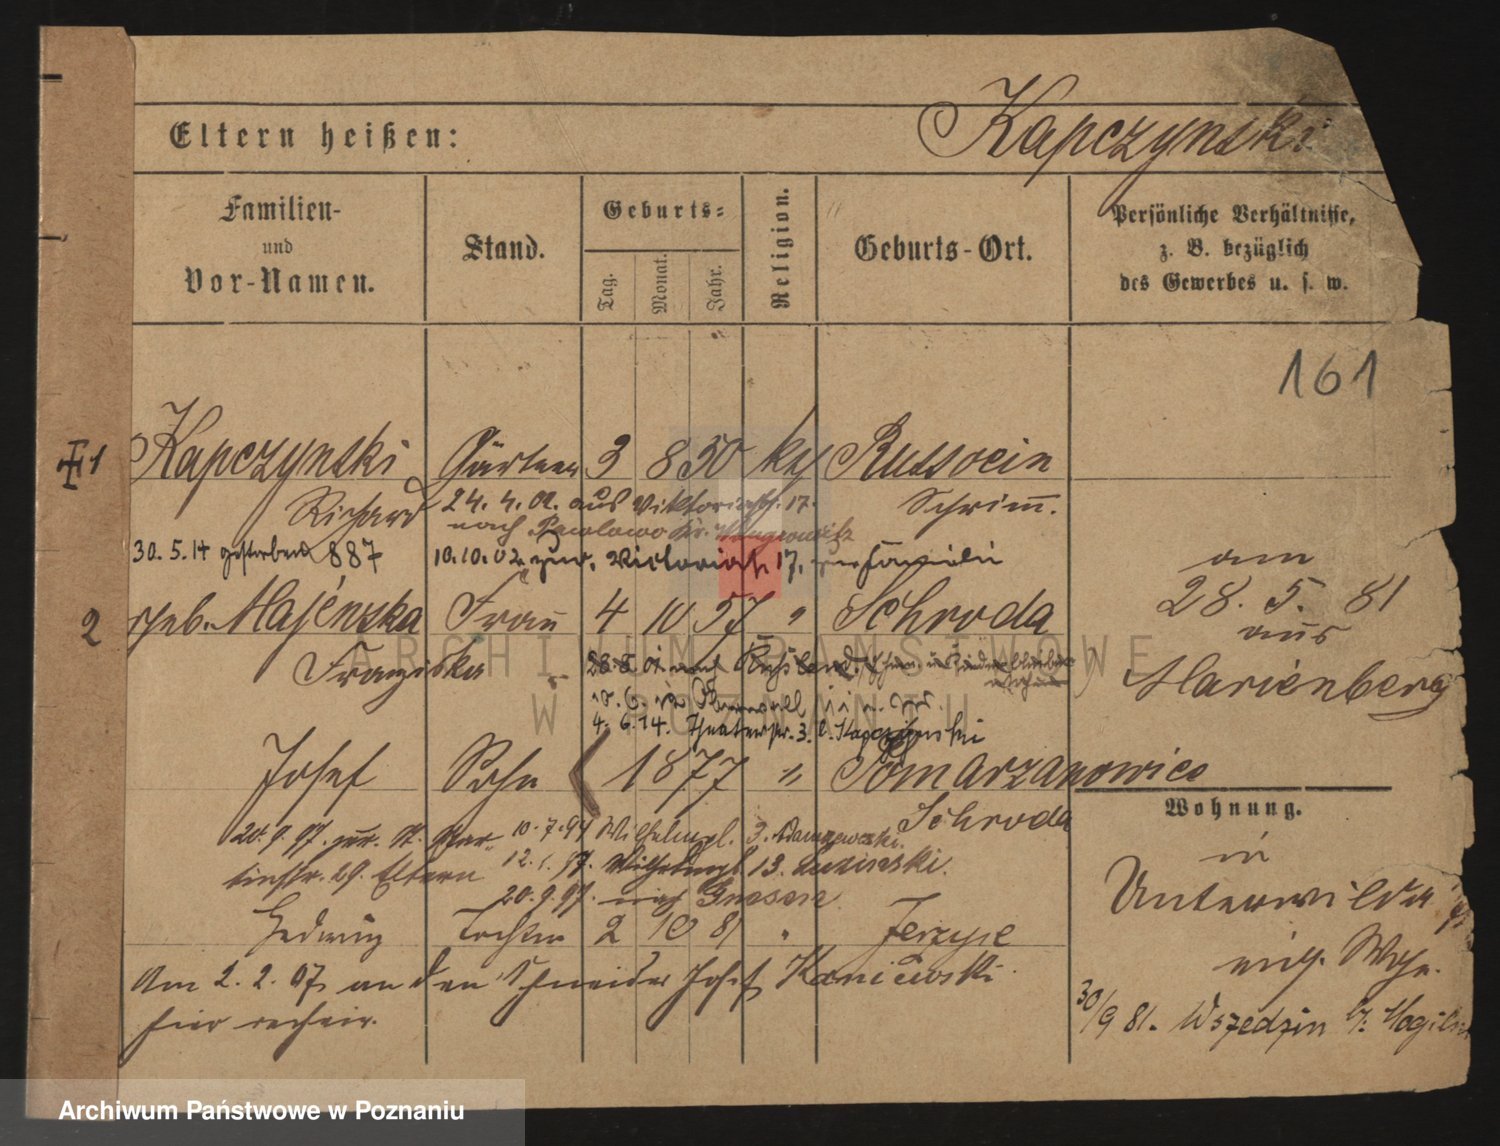 Kapczynski
Eltern heißen:
Familien-
und
Vor-Namen.
Stand.
Geburts-
Tag.
Monat.
Jahr.
Religion.
Geburts-Ort.
Persönliche Verhältnisse,
z. B. bezüglich
des Gewerbes u. s. w.
161
1 Kapczynski Gärtner 3 8 50 kth Russocin
Richard 24. 4. 02. aus Viktoriastr. 17. Schrimm.
nach
30. 5. 14 gestorben 887 10.10.02 zur. Victoriastr. 17.
am
28. 5. 81
aus
Marienberg
2 geb. Majénska Frau 4 10 57 " Schroda
Franziska
4. 6. 14. Theaterstr. 3. b. Kapczynski
Josef Sohn 1877 " Pomarzanowice
Schroda
Wohnung.
20. 9. 97. zur. 10. 7. 94 Wilhelmpl. 3.
29. Eltern 12. 1. 97. Wilhelmpl. 13.
20. 9. 97. nach Gnesen
in
Unterwilda
Hedwig Tochter 2 10 81 " Jerzyce
eig. Whg.
Am 2. 2. 07 an den Schneider Josef Kaniewski
hier verheir.
30/9 81. Wszedzin b. Mogiln
ARCHIWUM PAŃSTWOWE
W POZNANIU
Archiwum Państwowe w Poznaniu